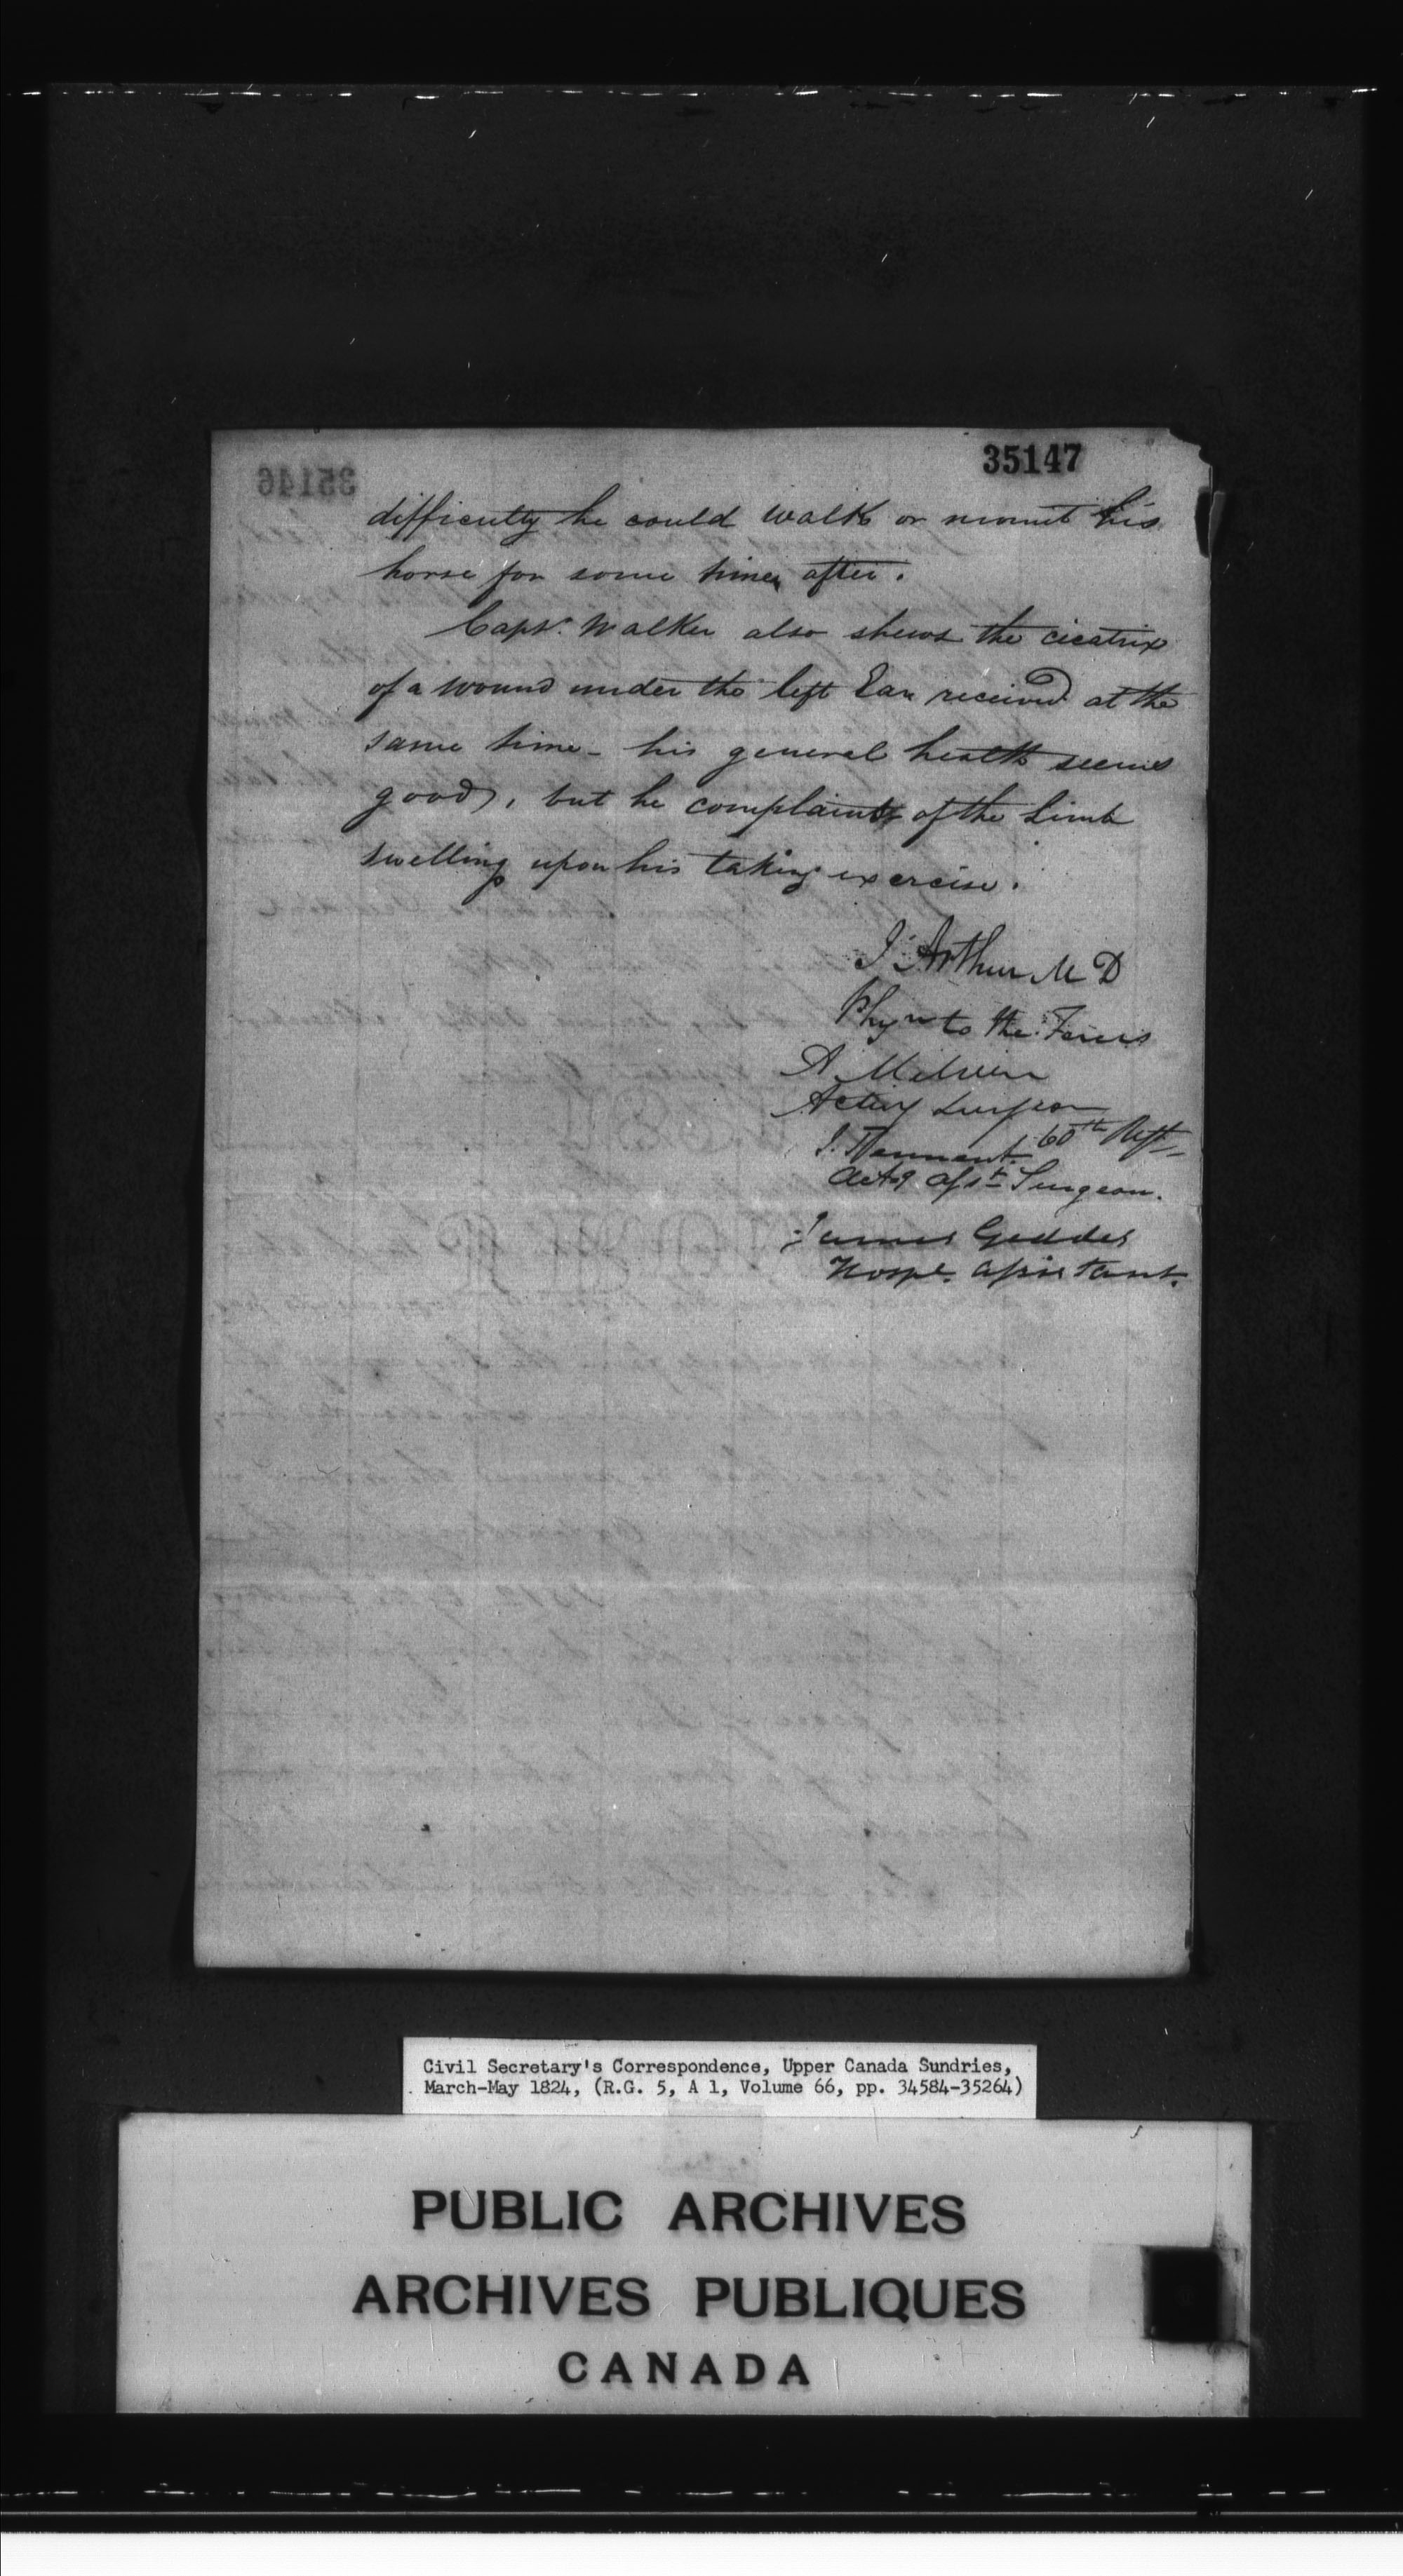 35147
35146
difficulty he could walk or mount his
horse for some time after.
Capt. Walker also shews the cicatrix
of a wound under the left Ear received at the
same time - his general health seems
good, but he complains of the Limb
swelling upon his taking exercise.
J Arthur M D
Phyn to the Forces
A
Acting Surgeon
60th Regt
J. Tennent
Actg Asst Surgeon.
James Geddes
Hospl. Assistant.
Civil Secretary's Correspondence, Upper Canada Sundries,
March-May 1824, (R.G. 5, A 1, Volume 66, pp. 34584-35264)
PUBLIC ARCHIVES
ARCHIVES PUBLIQUES
CANADA